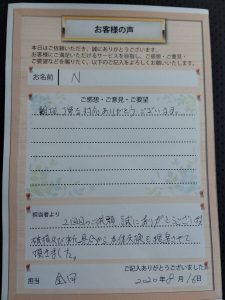 お客様の声
本日はご依頼いただき、誠にありがとうございます。
お客様にご満足いただけるサービスを目指し、ご感想・ご意見・
ご要望などを賜りたく、以下のご記入をよろしくお願いいたします。
お名前 N
ご感想・ご意見・ご要望
親切、丁寧な対応ありがとうございます。
担当者より
2回目のご依頼 誠にありがとうございます
させて
頂きました。
ご記入ありがとうございました
担当 金田 2020年8月16日